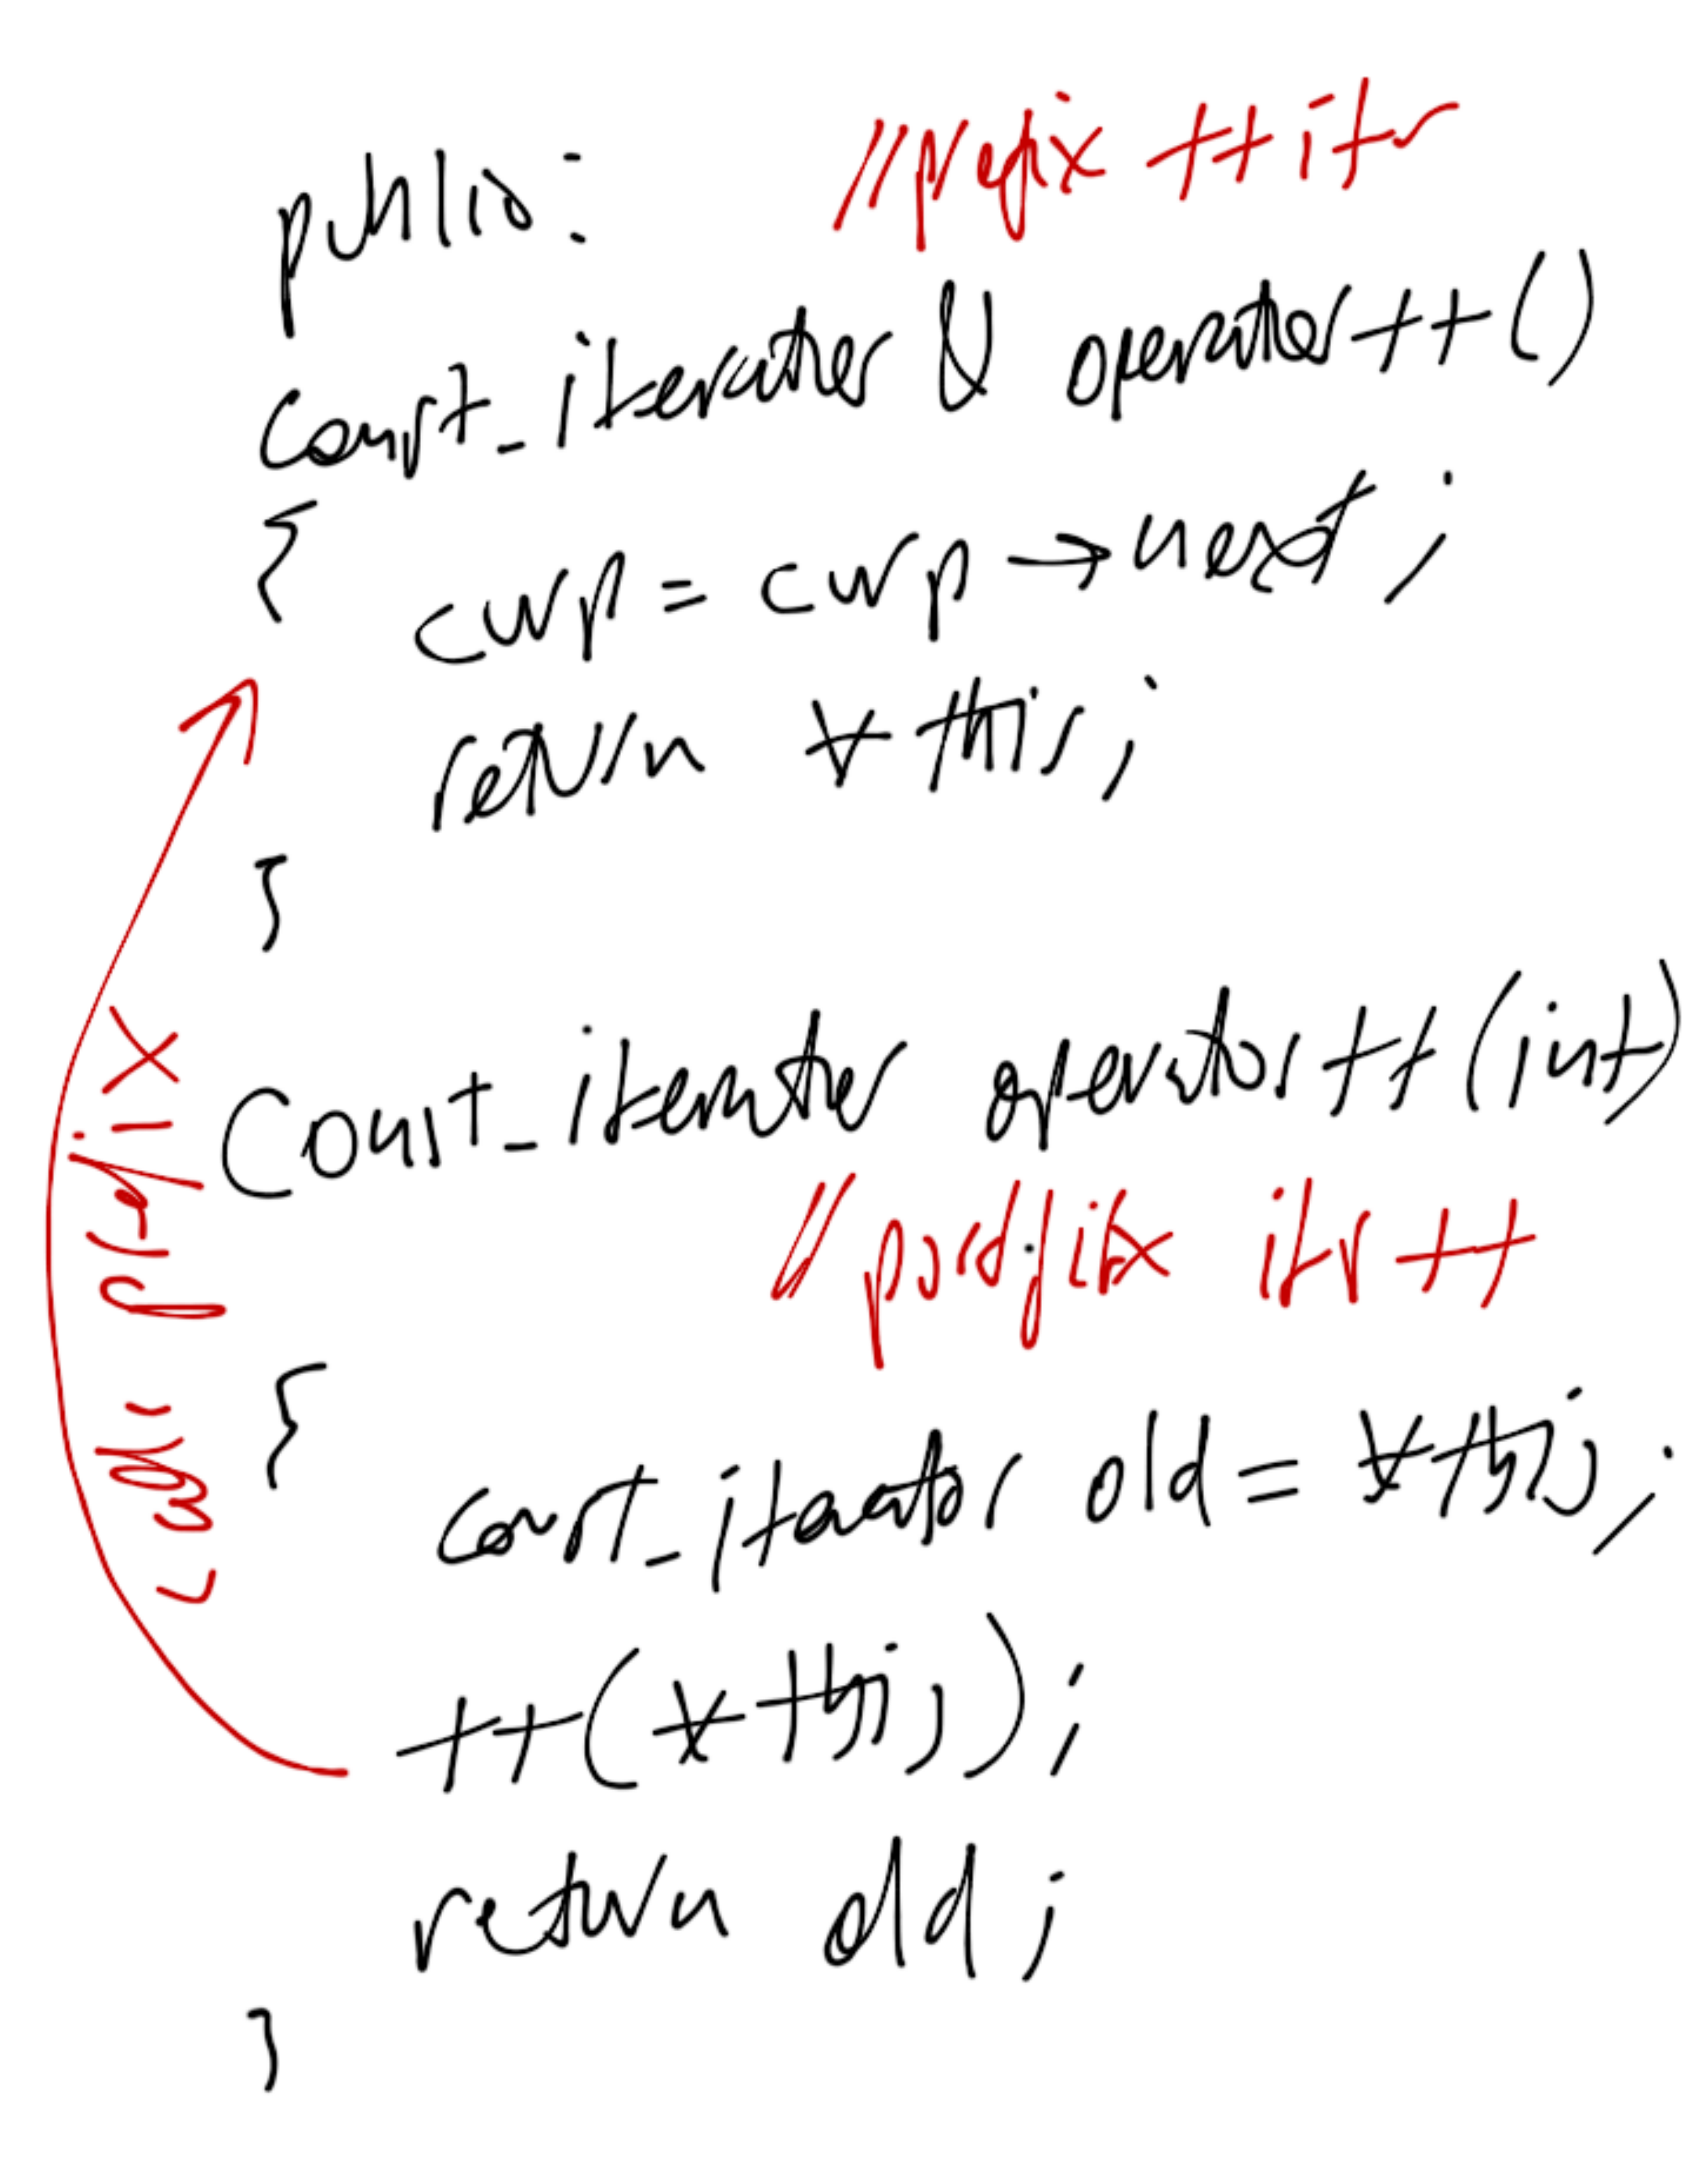 //prefix ++itr
public:
const_iterator & operator++()
{
curp = curp → next ;
return *this ;
}
const_iterator operator++(int)
//postfix itr++
{
const_iterator old = *this ;
++(*this) ;
return old ;
}
prefix